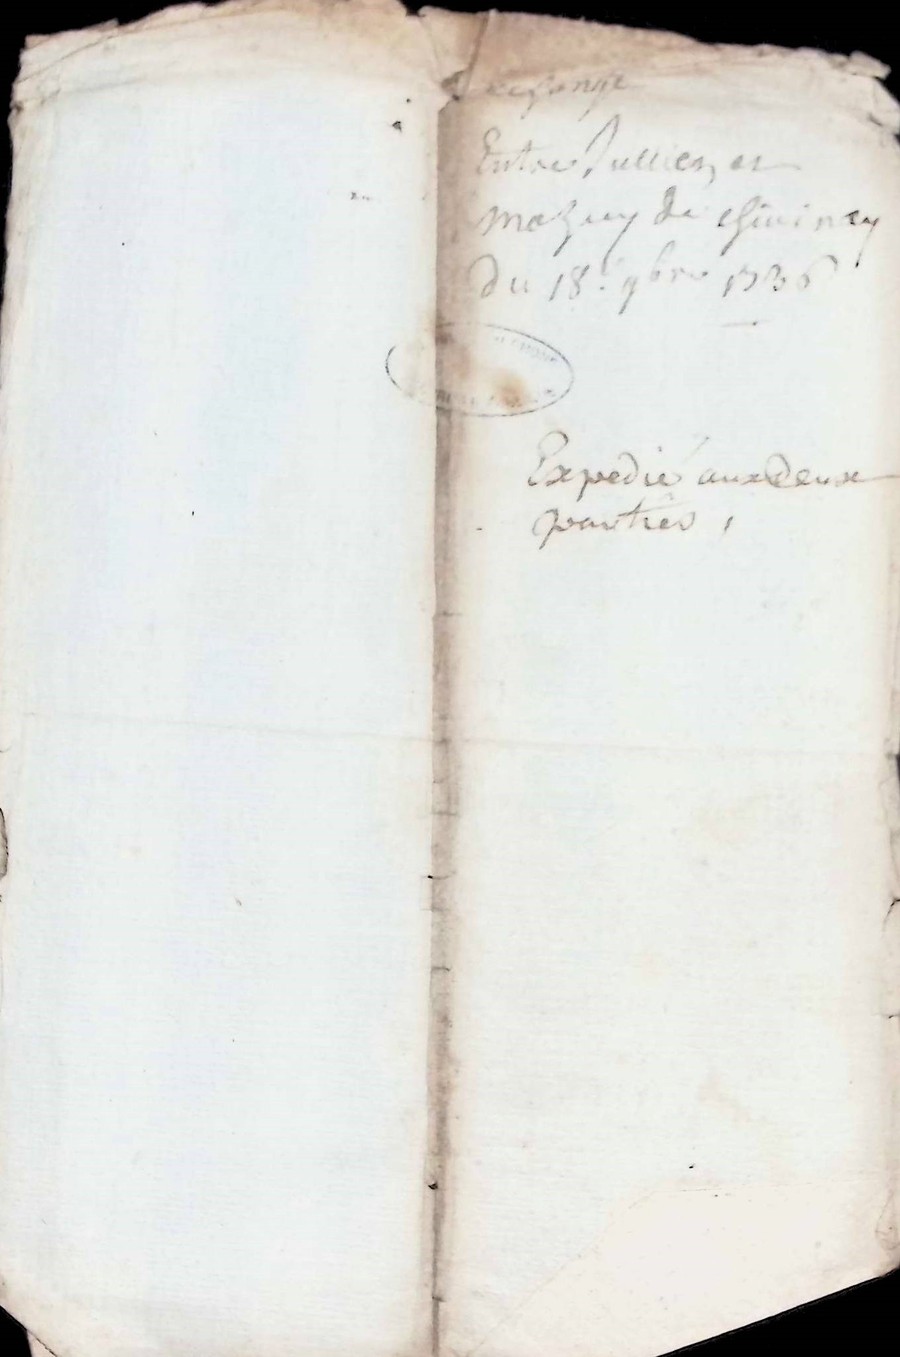 Echange
Entre Jullien et
mazuy de Chivinay
du 18e 9bre 1736
Expedié aux deux
parties,